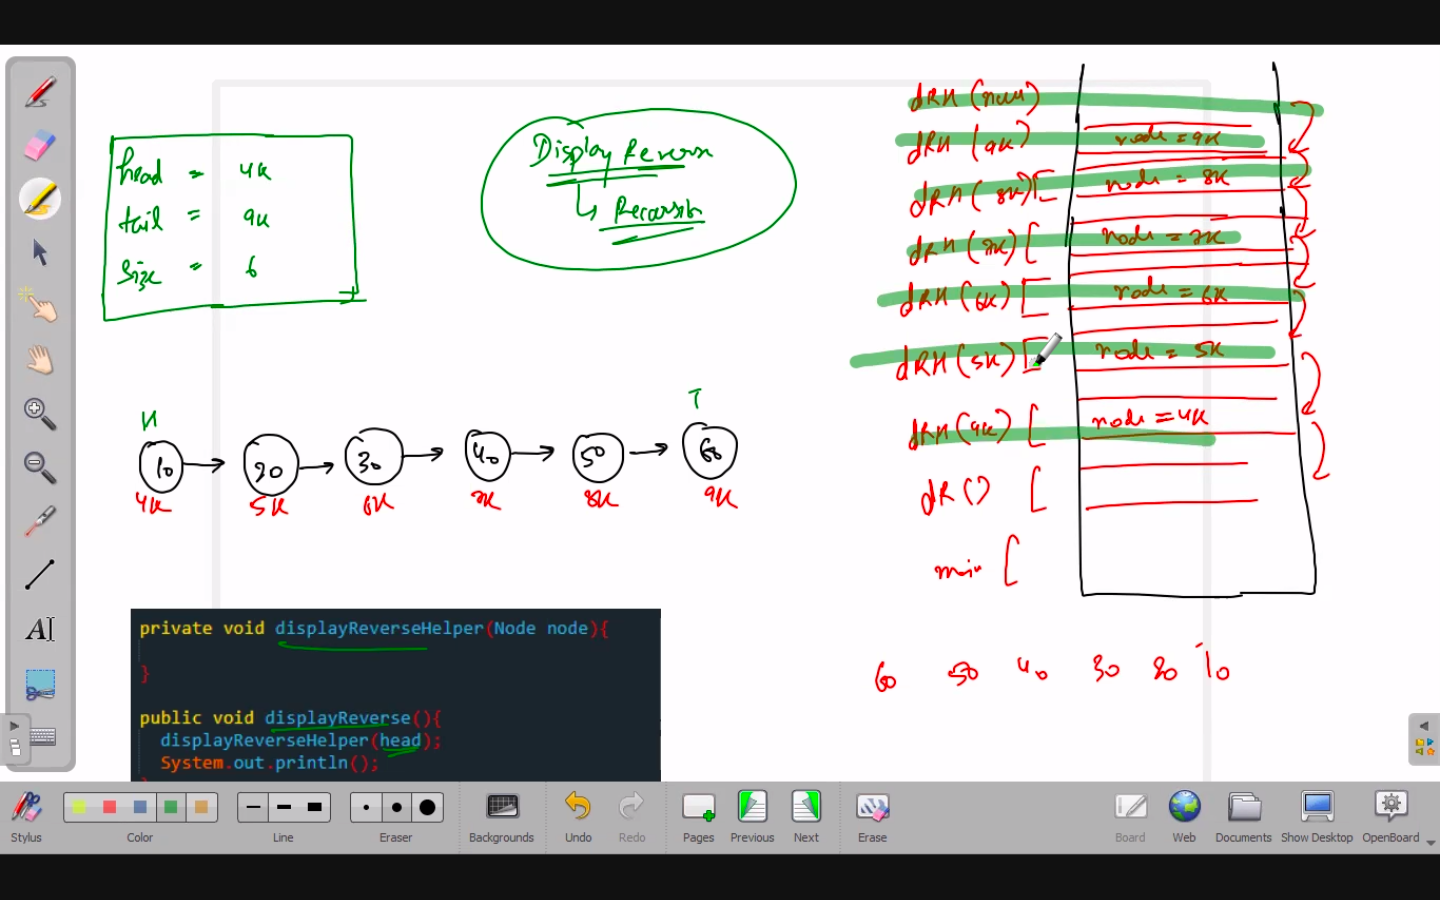 head = 4k
tail = 9k
size = 6
Display Reverse
↳ Recursion
H
T
10 → 20 → 30 → 40 → 50 → 60
4k 5k 6k 7k 8k 9k
dRH (null)
dRH (9k) [ node = 9k
dRH (8k) [ node = 8k
dRH (7k) [ node = 7k
dRH (6k) [ node = 6k
dRH (5k) [ node = 5k
dRH (4k) [ node = 4k
dR () [
main [
60 50 40 30 20 10
private void displayReverseHelper(Node node){
}
public void displayReverse(){
displayReverseHelper(head);
System.out.println();
A
Stylus
Color
Line
Eraser
Backgrounds
Undo
Redo
Pages
Previous
Next
Erase
Board
Web
Documents
Show Desktop
OpenBoard